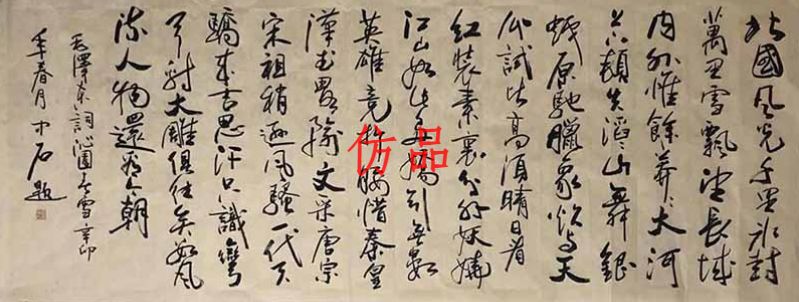 北國風光千里冰封
萬里雪飄望長城
内外惟餘莽々大河
上下頓失滔々山舞銀
蛇原馳臘象欲與天
公試比高須晴日看
紅裝素裹分外妖嬈
江山如此多嬌引無數
英雄競折腰惜秦皇
漢武略輸文采唐宗
宋祖稍遜風騷一代天
驕成吉思汗只識彎
弓射大雕俱往矣數風
流人物還看今朝
毛澤東詞沁園春雪辛卯
年春月中石題
仿品